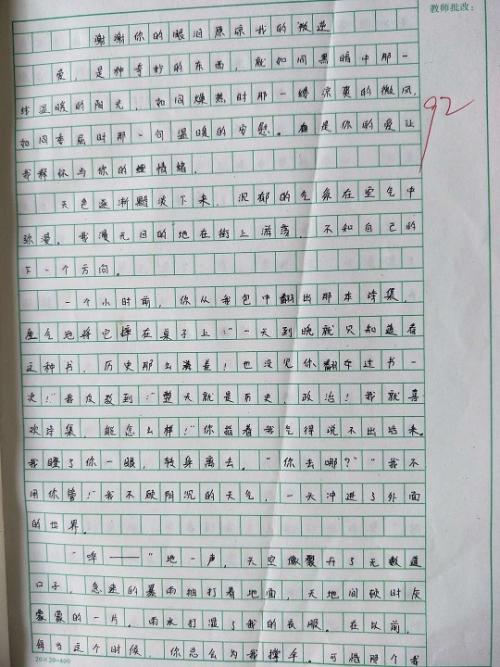 教师批改：
谢谢你的眼泪原谅我的叛逆
92
爱，是种奇妙的东西，就如同黑暗中那一
缕温暖的阳光，如同燥热时那一缕凉爽的微风，
如同委屈时那一句温暖的安慰。是你的爱让
我释怀与你的情绪。
天色逐渐黯淡下来，沉郁的气氛在空气中
弥漫。我漫无目的地在街上游荡，不知自己的
下一个方向。
一个小时前，你从我包中翻出那本诗集，
生气地将它摔在桌子上：“一天到晚就只知道看
这种书，历史那么差！也没见你翻过书一
次！”我反驳到：“整天就是历史，政治！我就喜
欢诗集，能怎么样！”你指着我气得说不出话来。
我瞪了你一眼，转身离去。“你去哪？”“我不
用你管！”我不顾阴沉的天气，一天冲进了外面
的世界。
“哗——”地一声，天空像裂开了无数道
口子，急速的暴雨拍打着地面，天地间顿时灰
蒙蒙的一片。雨水打湿了我的衣服。在以前，
每当这个时候，你总会为我撑伞。可惜那个我
20×20=400